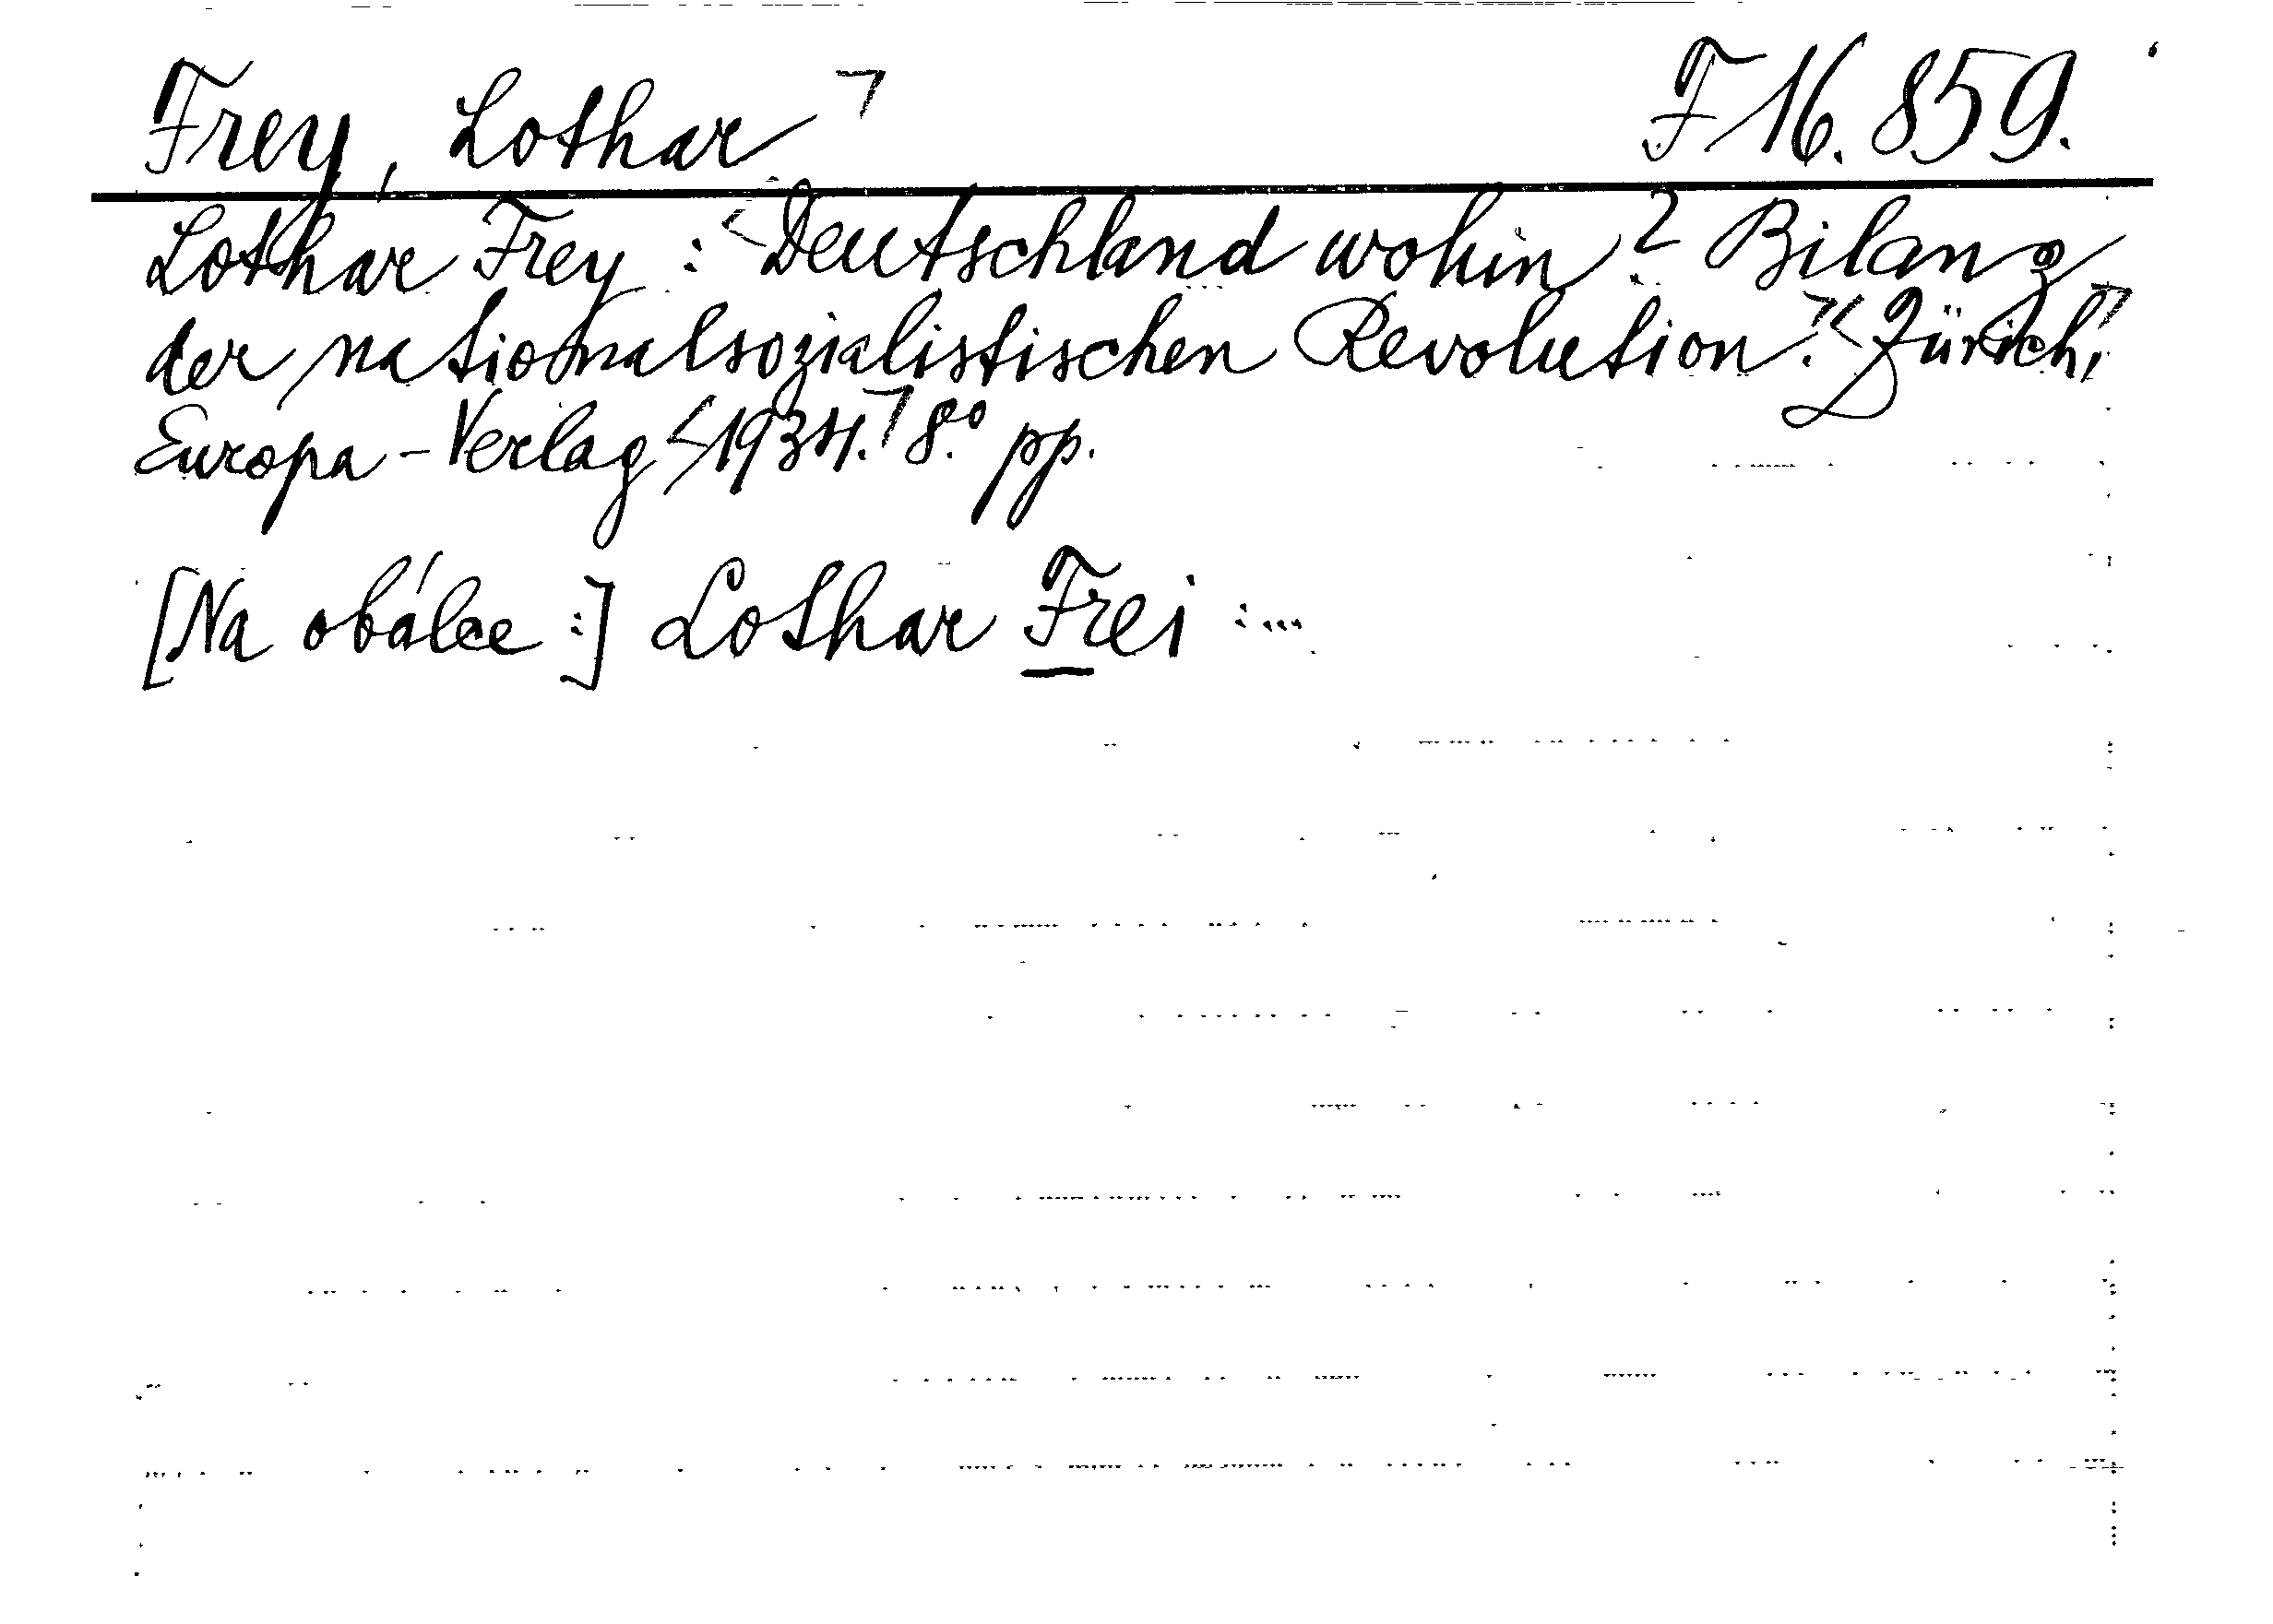 Frey, Lothar F 16.859.
Lothar Frey : Deutschland wohin? Bilanz
der nationalsozialistischen Revolution. Zürich,
Europa-Verlag 1934. 8° pp.
[Na obálce :] Lothar Frei :...